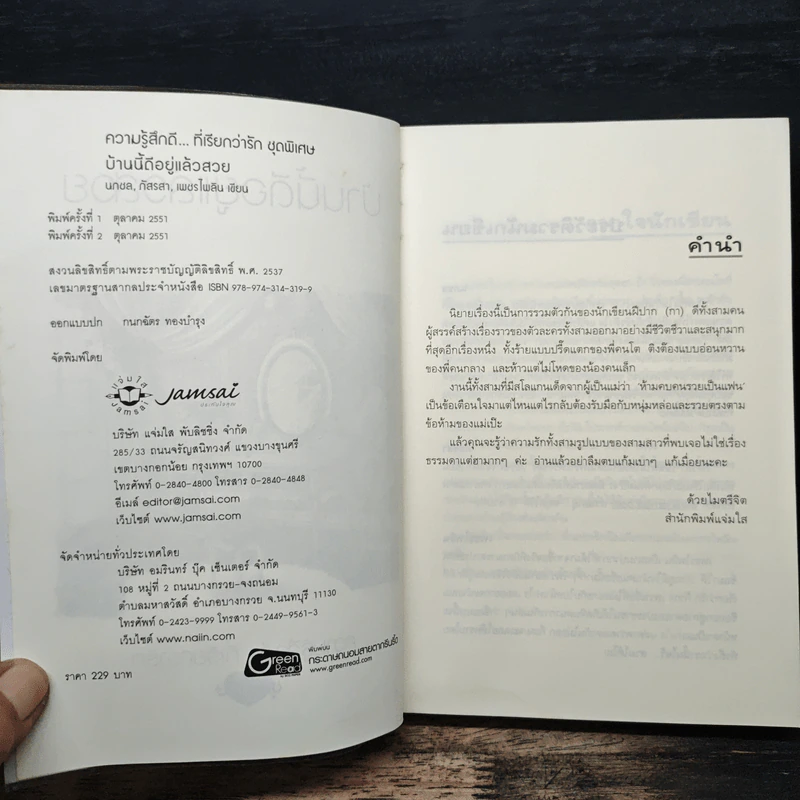 ความรู้สึกดี... ที่เรียกว่ารัก ชุดพิเศษ
บ้านนี้ดีอยู่แล้วสวย
นภชล, ภัสรสา, เพชรไพลิน เขียน
พิมพ์ครั้งที่ 1 ตุลาคม 2551
พิมพ์ครั้งที่ 2 ตุลาคม 2551
สงวนลิขสิทธิ์ตามพระราชบัญญัติลิขสิทธิ์ พ.ศ. 2537
เลขมาตรฐานสากลประจำหนังสือ ISBN 978-974-314-319-9
ออกแบบปก กนกฉัตร ทองบำรุง
จัดพิมพ์โดย
แจ่มใส
Jamsai
jamsai
บริษัท แจ่มใส พับลิชชิ่ง จำกัด
285/33 ถนนจรัญสนิทวงศ์ แขวงบางขุนศรี
เขตบางกอกน้อย กรุงเทพฯ 10700
โทรศัพท์ 0-2840-4800 โทรสาร 0-2840-4848
อีเมล์ editor@jamsai.com
เว็บไซต์ www.jamsai.com
จัดจำหน่ายทั่วประเทศโดย
บริษัท อมรินทร์ บุ๊ค เซ็นเตอร์ จำกัด
108 หมู่ที่ 2 ถนนบางกรวย-จงถนอม
ตำบลมหาสวัสดิ์ อำเภอบางกรวย จ.นนทบุรี 11130
โทรศัพท์ 0-2423-9999 โทรสาร 0-2449-9561-3
เว็บไซต์ www.naiin.com
Green Read
พิมพ์บน
กระดาษถนอมสายตากรีนรี้ด
www.greenread.com
ราคา 229 บาท
คำนำ
นิยายเรื่องนี้เป็นการรวมตัวกันของนักเขียนฝีปาก (กา) ดีทั้งสามคน
ผู้สรรค์สร้างเรื่องราวของตัวละครทั้งสามออกมาอย่างมีชีวิตชีวาและสนุกมาก
ที่สุดอีกเรื่องหนึ่ง ทั้งร้ายแบบปรี๊ดแตกของพี่คนโต ติงต๊องแบบอ่อนหวาน
ของพี่คนกลาง และห้าวแต่ไม่โหดของน้องคนเล็ก
งานนี้ทั้งสามที่มีสโลแกนเด็ดจากผู้เป็นแม่ว่า 'ห้ามคบคนรวยเป็นแฟน'
เป็นข้อเตือนใจมาแต่ไหนแต่ไรกลับต้องรับมือกับหนุ่มหล่อและรวยตรงตาม
ข้อห้ามของแม่เป๊ะ
แล้วคุณจะรู้ว่าความรักทั้งสามรูปแบบของสามสาวที่พบเจอไม่ใช่เรื่อง
ธรรมดาแต่ฮามากๆ ค่ะ อ่านแล้วอย่าลืมตบแก้มเบาๆ แก้เมื่อยนะคะ
ด้วยไมตรีจิต
สำนักพิมพ์แจ่มใส